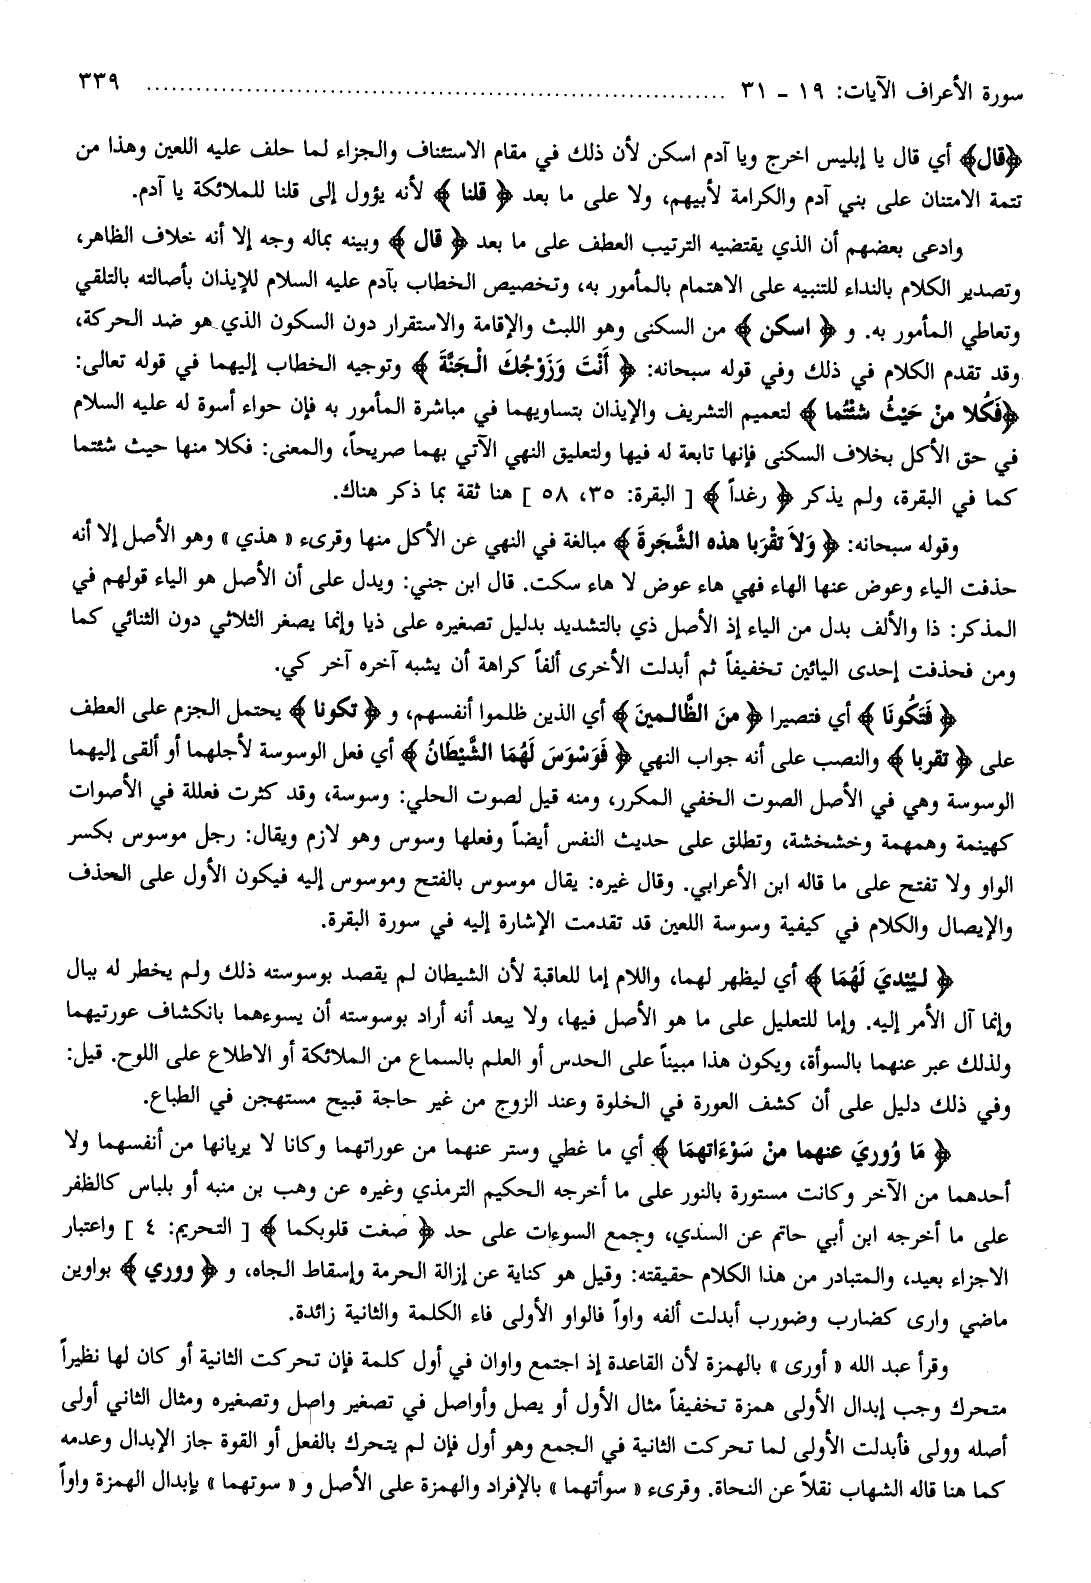 سورة الأعراف الآيات: ١٩ - ٣١ ........................................................................ ٣٣٩
﴿قال﴾ أي قال يا إبليس اخرج ويا آدم اسكن لأن ذلك في مقام الاستئناف والجزاء لما حلف عليه اللعين وهذا من
تتمة الامتنان على بني آدم والكرامة لأبيهم، ولا على ما بعد ﴿ قلنا ﴾ لأنه يؤول إلى قلنا للملائكة يا آدم.
وادعى بعضهم أن الذي يقتضيه الترتيب العطف على ما بعد ﴿ قال ﴾ وبينه بماله وجه إلا أنه خلاف الظاهر،
وتصدير الكلام بالنداء للتنبيه على الاهتمام بالمأمور به، وتخصيص الخطاب بآدم عليه السلام للإيذان بأصالته بالتلقي
وتعاطي المأمور به. و ﴿ اسكن ﴾ من السكنى وهو اللبث والإقامة والاستقرار دون السكون الذي هو ضد الحركة،
وقد تقدم الكلام في ذلك وفي قوله سبحانه: ﴿ أَنْتَ وَزَوْجُكَ الْجَنَّةَ ﴾ وتوجيه الخطاب إليهما في قوله تعالى:
﴿فَكُلا منْ حَيْثُ شئْتُما ﴾ لتعميم التشريف والإيذان بتساويهما في مباشرة المأمور به فإن حواء أسوة له عليه السلام
في حق الأكل بخلاف السكنى فإنها تابعة له فيها ولتعليق النهي الآتي بهما صريحاً، والمعنى: فكلا منها حيث شئتما
كما في البقرة، ولم يذكر ﴿ رغداً ﴾ [ البقرة: ٣٥، ٥٨ ] هنا ثقة بما ذكر هناك.
وقوله سبحانه: ﴿ وَلاَ تقْرَبا هذه الشَّجرةَ ﴾ مبالغة في النهي عن الأكل منها وقرىء « هذي » وهو الأصل إلا أنه
حذفت الياء وعوض عنها الهاء فهي هاء عوض لا هاء سكت. قال ابن جني: ويدل على أن الأصل هو الياء قولهم في
المذكر: ذا والألف بدل من الياء إذ الأصل ذي بالتشديد بدليل تصغيره على ذيا وإنما يصغر الثلاثي دون الثنائي كما
ومن فحذفت إحدى اليائين تخفيفاً ثم أبدلت الأخرى ألفاً كراهة أن يشبه آخره آخر كي.
﴿ فَتَكُونَا ﴾ أي فتصيرا ﴿ منَ الظَّالمينَ ﴾ أي الذين ظلموا أنفسهم، و ﴿ تكونا ﴾ يحتمل الجزم على العطف
على ﴿ تقربا ﴾ والنصب على أنه جواب النهي ﴿ فَوَسْوَسَ لَهُمَا الشَّيْطَانُ ﴾ أي فعل الوسوسة لأجلهما أو ألقى إليهما
الوسوسة وهي في الأصل الصوت الخفي المكرر، ومنه قيل لصوت الحلي: وسوسة، وقد كثرت فعللة في الأصوات
كهينمة وهمهمة وخشخشة، وتطلق على حديث النفس أيضاً وفعلها وسوس وهو لازم ويقال: رجل موسوس بكسر
الواو ولا تفتح على ما قاله ابن الأعرابي. وقال غيره: يقال موسوس بالفتح وموسوس إليه فيكون الأول على الحذف
والإيصال والكلام في كيفية وسوسة اللعين قد تقدمت الإشارة إليه في سورة البقرة.
﴿ ليُبْديَ لَهُمَا ﴾ أي ليظهر لهما، واللام إما للعاقبة لأن الشيطان لم يقصد بوسوسته ذلك ولم يخطر له ببال
وإنما آل الأمر إليه. وإما للتعليل على ما هو الأصل فيها، ولا يبعد أنه أراد بوسوسته أن يسوءهما بانكشاف عورتيهما
ولذلك عبر عنهما بالسوأة، ويكون هذا مبيناً على الحدس أو العلم بالسماع من الملائكة أو الاطلاع على اللوح. قيل:
وفي ذلك دليل على أن كشف العورة في الخلوة وعند الزوج من غير حاجة قبيح مستهجن في الطباع.
﴿ مَا وُوريَ عنهما منْ سَوْءَاتهمَا ﴾ أي ما غطي وستر عنهما من عوراتهما وكانا لا يريانها من أنفسهما ولا
أحدهما من الآخر وكانت مستورة بالنور على ما أخرجه الحكيم الترمذي وغيره عن وهب بن منبه أو بلباس كالظفر
على ما أخرجه ابن أبي حاتم عن السدي، وجمع السوءات على حد ﴿ صغت قلوبكما ﴾ [ التحريم: ٤ ] واعتبار
الاجزاء بعيد، والمتبادر من هذا الكلام حقيقته: وقيل هو كناية عن إزالة الحرمة وإسقاط الجاه، و ﴿ ووري ﴾ بواوين
ماضي وارى كضارب وضورب أبدلت ألفه واواً فالواو الأولى فاء الكلمة والثانية زائدة.
وقرأ عبد الله « أورى » بالهمزة لأن القاعدة إذ اجتمع واوان في أول كلمة فإن تحركت الثانية أو كان لها نظيراً
متحرك وجب إبدال الأولى همزة تخفيفاً مثال الأول أو يصل وأواصل في تصغير واصل وتصغيره ومثال الثاني أولى
أصله وولى فأبدلت الأولى لما تحركت الثانية في الجمع وهو أول فإن لم يتحرك بالفعل أو القوة جاز الإبدال وعدمه
كما هنا قاله الشهاب نقلاً عن النحاة. وقرىء « سوأتهما » بالإفراد والهمزة على الأصل و « سوتهما » بإبدال الهمزة واواً